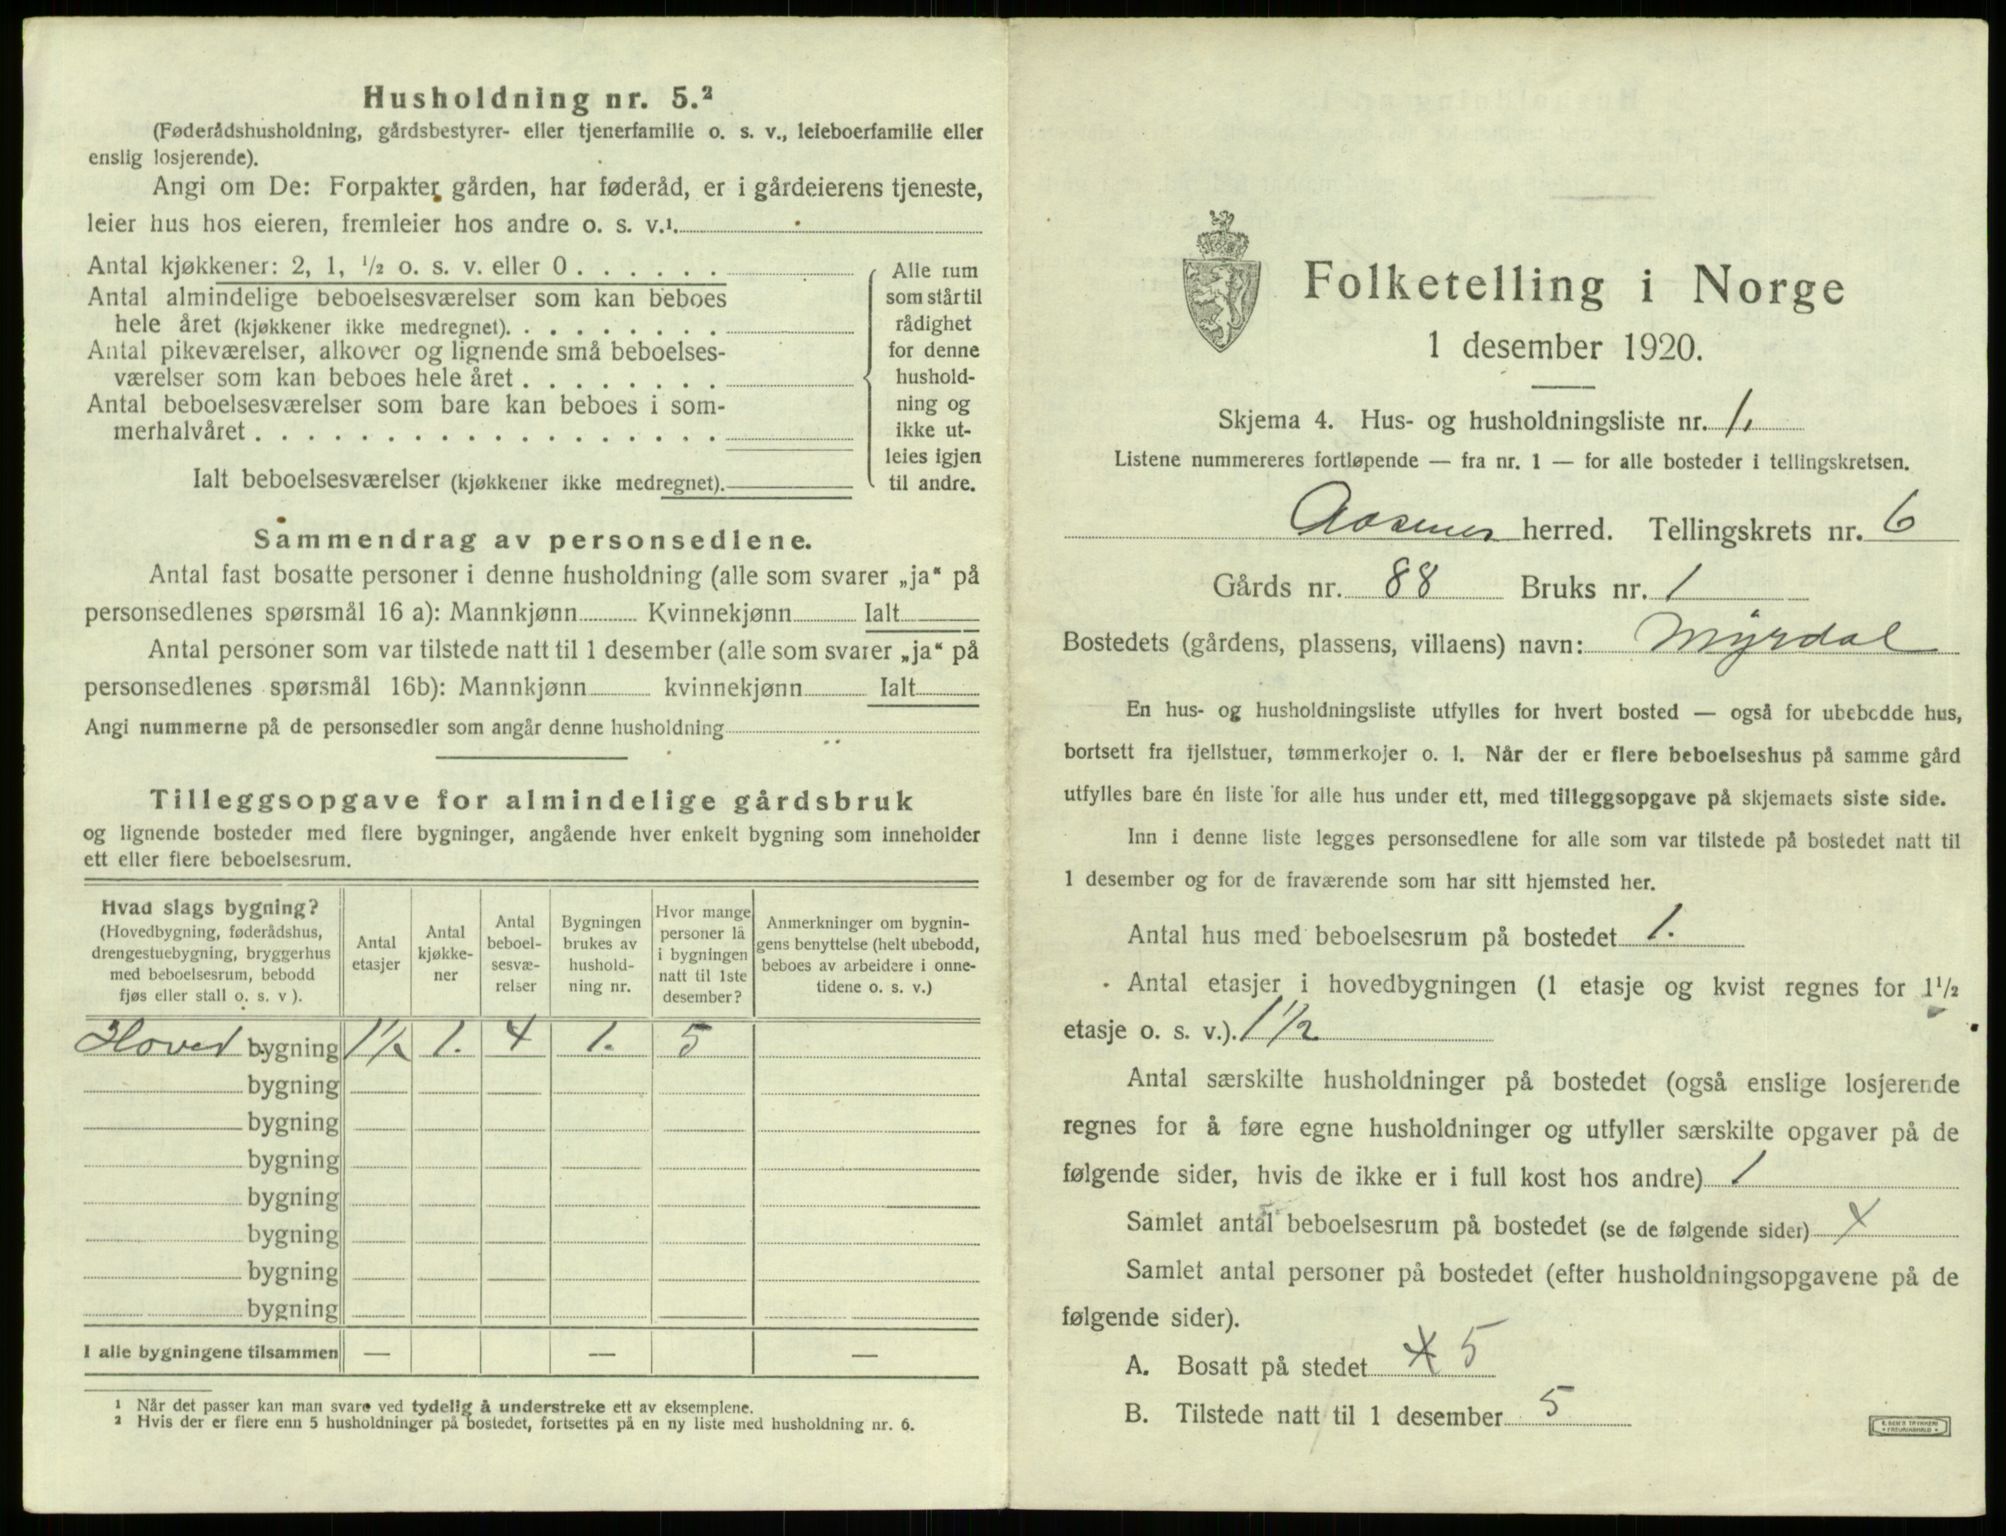 Husholdning nr. 5.²
(Føderådshusholdning, gårdsbestyrer- eller tjenerfamilie o. s. v., leieboerfamilie eller
enslig losjerende).
Angi om De: Forpakter gården, har føderåd, er i gårdeierens tjeneste,
leier hus hos eieren, fremleier hos andre o. s. v.¹
Antal kjøkkener: 2, 1, ½ o. s. v. eller 0 . . . . . .
Antal almindelige beboelsesværelser som kan beboes
hele året (kjøkkener ikke medregnet). . . . . . . . .
Antal pikeværelser, alkover og lignende små beboelses-
værelser som kan beboes hele året . . . . . . . .
Antal beboelsesværelser som bare kan beboes i som-
merhalvåret . . . . . . . . . . . . . . . . . .
Ialt beboelsesværelser (kjøkkener ikke medregnet).
Alle rum
som står til
rådighet
for denne
hushold-
ning og
ikke ut-
leies igjen
til andre.
Sammendrag av personsedlene.
Antal fast bosatte personer i denne husholdning (alle som svarer „ja“ på
personsedlenes spørsmål 16 a): Mannkjønn Kvinnekjønn Ialt
Antal personer som var tilstede natt til 1 desember (alle som svarer „ja“ på
personsedlenes spørsmål 16b): Mannkjønn kvinnekjønn Ialt
Angi nummerne på de personsedler som angår denne husholdning
Tilleggsopgave for almindelige gårdsbruk
og lignende bosteder med flere bygninger, angående hver enkelt bygning som inneholder
ett eller flere beboelsesrum.
Hvad slags bygning?
(Hovedbygning, føderådshus,
drengestuebygning, bryggerhus
med beboelsesrum, bebodd
fjøs eller stall o. s. v ).
Antal
etasjer
Antal
kjøkke-
ner
Antal
beboel-
sesvæ-
relser
Bygningen
brukes av
hushold-
ning nr.
Hvor mange
personer lå
i bygningen
natt til 1ste
desember?
Anmerkninger om bygnin-
gens benyttelse (helt ubebodd,
beboes av arbeidere i onne-
tidene o. s. v.)
Hoved bygning 1½ 1. 4 1. 5
bygning
bygning
bygning
bygning
bygning
bygning
bygning
I alle bygningene tilsammen — — —
¹ Når det passer kan man svare ved tydelig å understreke ett av eksemplene.
² Hvis der er flere enn 5 husholdninger på bostedet, fortsettes på en ny liste med husholdning nr. 6.
Folketelling i Norge
1 desember 1920.
Skjema 4. Hus- og husholdningsliste nr. 1,
Listene nummereres fortløpende — fra nr. 1 — for alle bosteder i tellingskretsen.
Aasnes herred. Tellingskrets nr. 6
Gårds nr. 88 Bruks nr. 1
Bostedets (gårdens, plassens, villaens) navn: Myrdal
En hus- og husholdningsliste utfylles for hvert bosted — også for ubebodde hus,
bortsett fra fjellstuer, tømmerkojer o. l. Når der er flere beboelseshus på samme gård
utfylles bare én liste for alle hus under ett, med tilleggsopgave på skjemaets siste side.
Inn i denne liste legges personsedlene for alle som var tilstede på bostedet natt til
1 desember og for de fraværende som har sitt hjemsted her.
Antal hus med beboelsesrum på bostedet 1.
Antal etasjer i hovedbygningen (1 etasje og kvist regnes for 1½
etasje o. s. v.). 1½
Antal særskilte husholdninger på bostedet (også enslige losjerende
regnes for å føre egne husholdninger og utfyller særskilte opgaver på de
følgende sider, hvis de ikke er i full kost hos andre) 1
Samlet antal beboelsesrum på bostedet (se de følgende sider) 4
Samlet antal personer på bostedet (efter husholdningsopgavene på de
følgende sider).
A. Bosatt på stedet 5
B. Tilstede natt til 1 desember 5